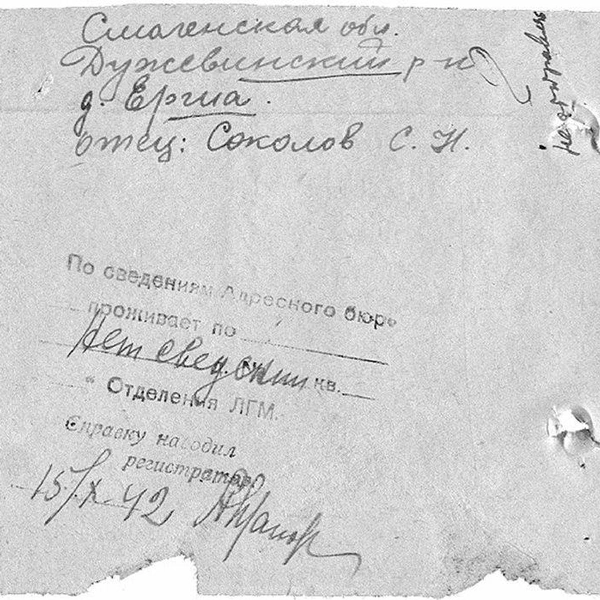 Смоленская обл.
Дужевинский р-н
д. Ергиа.
отец: Соколов С. Н.
не отправлено
По сведениям Адресного бюро
проживает по
Нет сведений кв.
" Отделения ЛГМ.
Справку наводил
регистратор
15/X 42